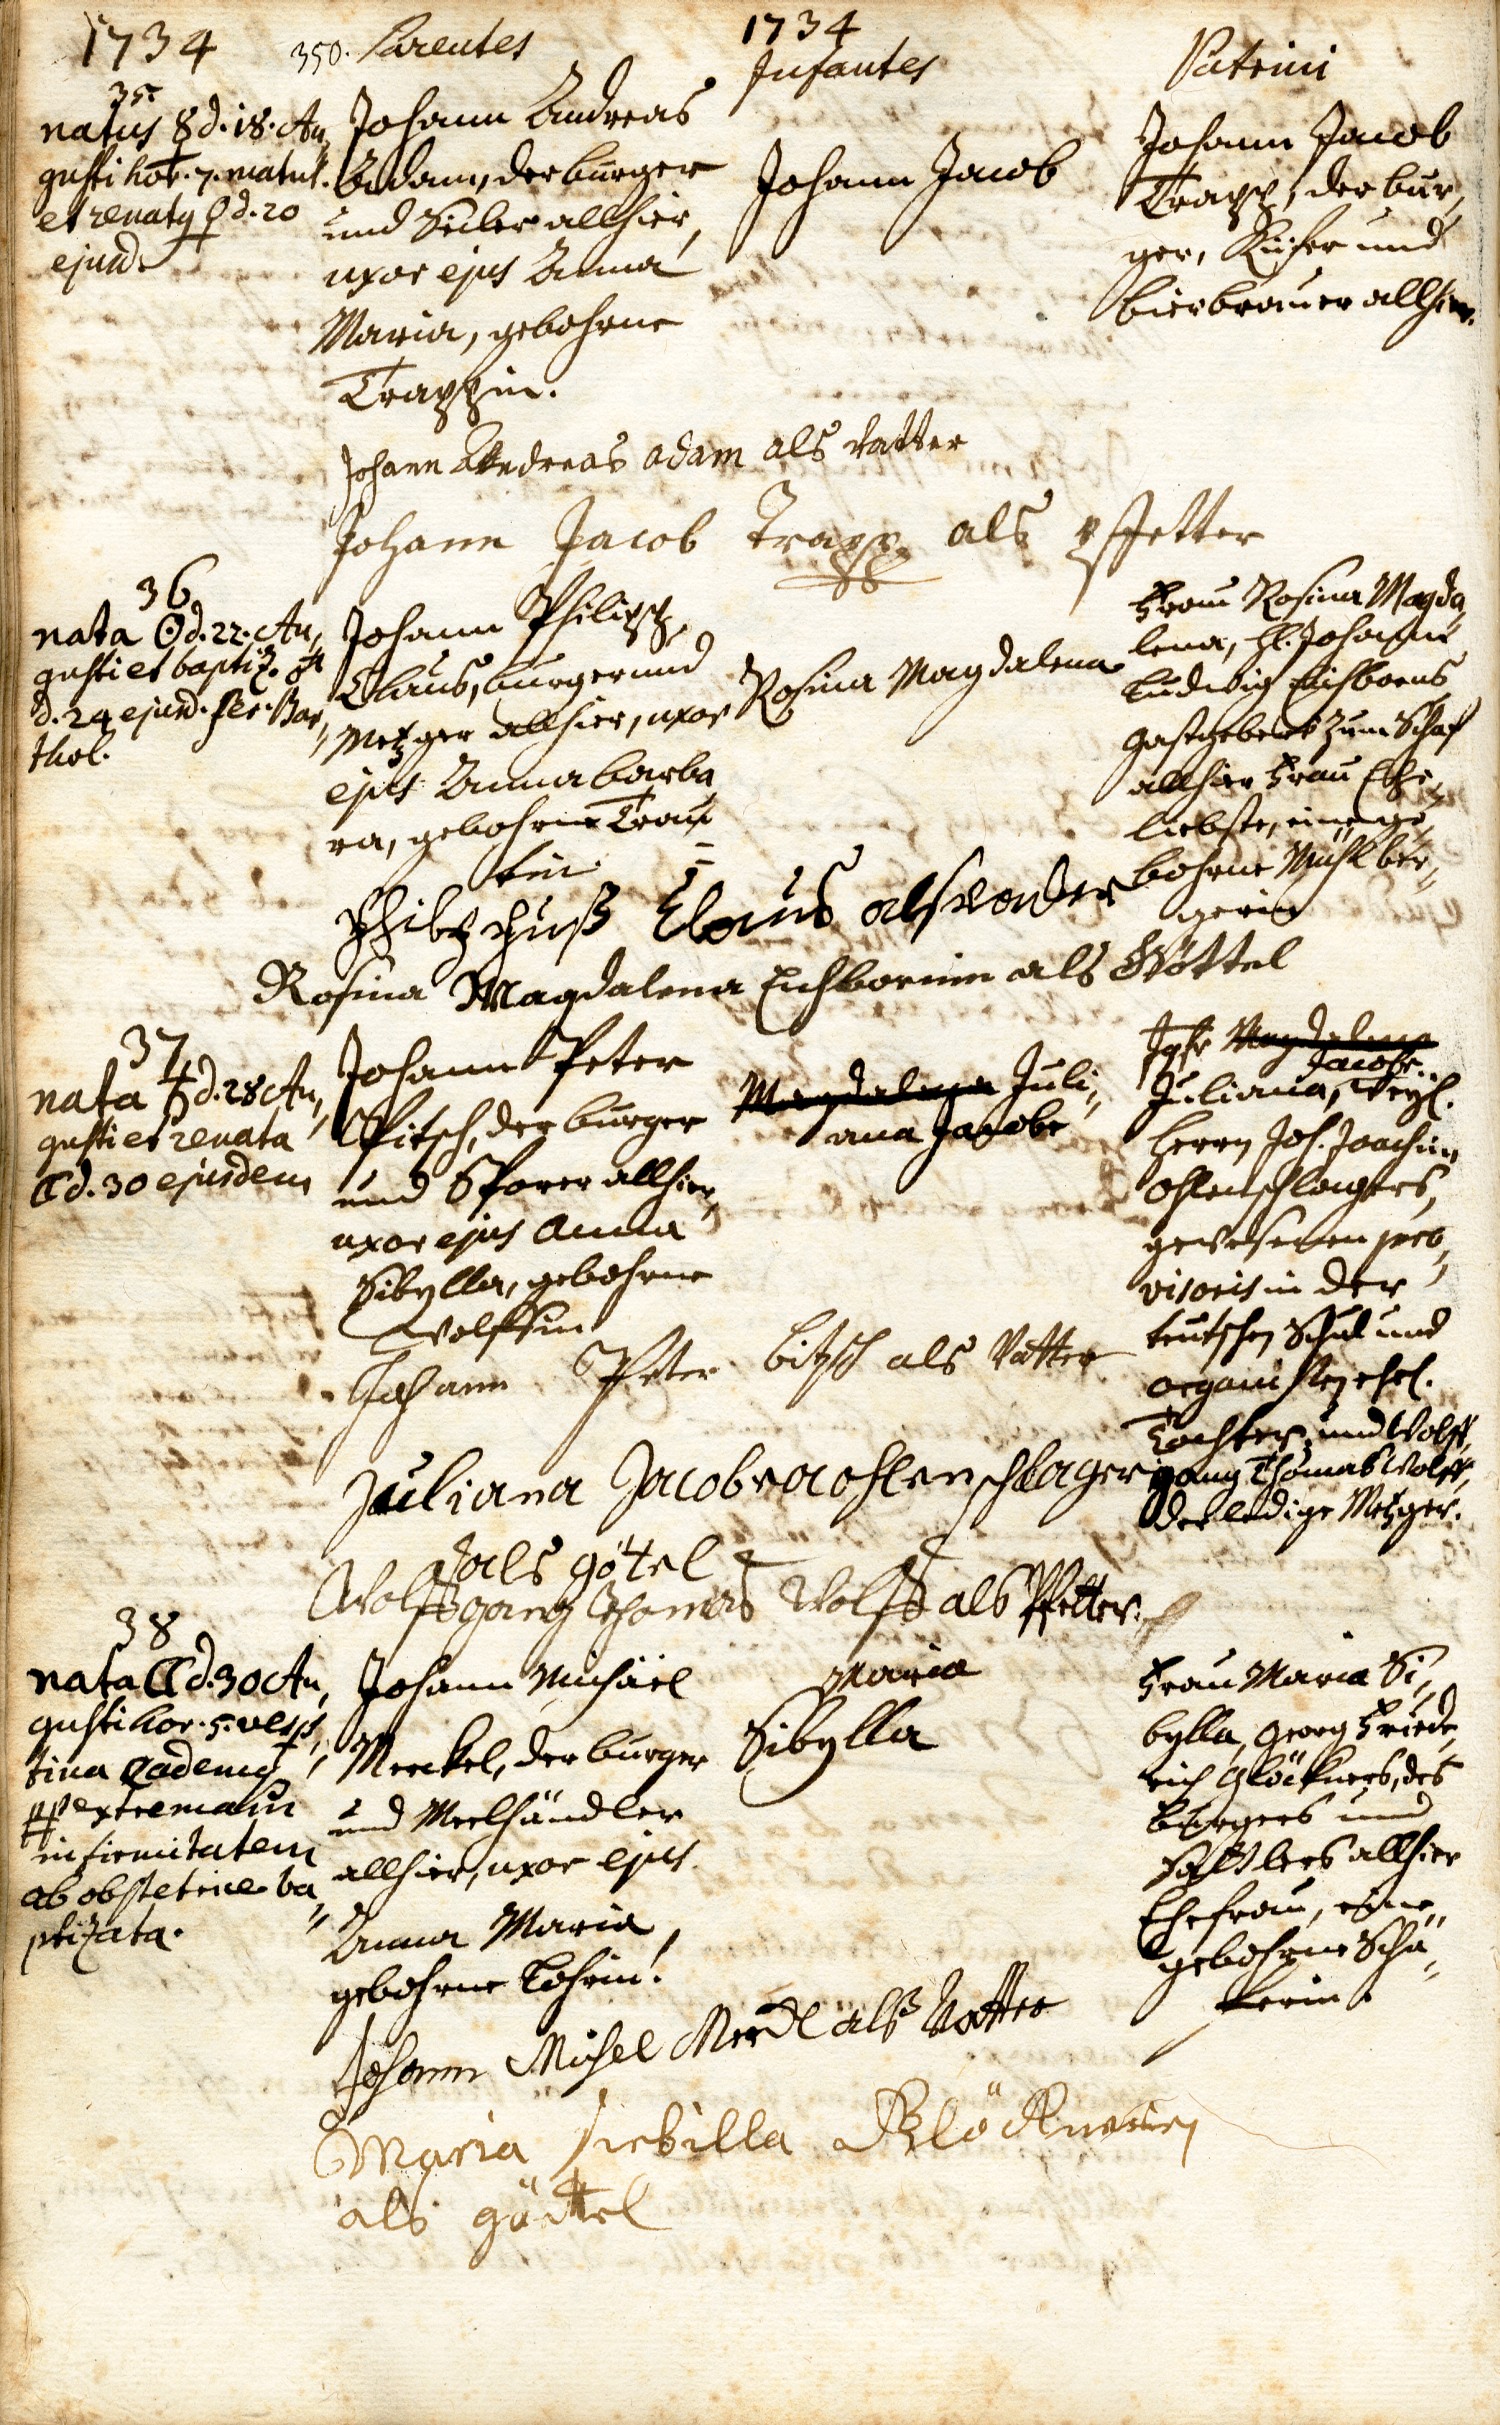 1734
350. Parentes
1734
Infantes
Patrini
35.
natus ☿ d. 18. Au,,
gusti hor. 7. matut.
et renatq ♀ d. 20
ejusd.
Johann Andreas
Adam, der burger
und Seiler allhier,
uxor ejus Anna
Maria, gebohrne
Trappin.
Johann Jacob
Johann Jacob
Trapp, der bur,,
ger, Küfer und
bierbrauer allhier.
Johann Andreas adam als vatter
Johann Jacob Trapp als pfetter
36
nata ☉ d. 22. Au,,
gusti et baptiz. ♂
d. 24 ejusd. fer. Bar,,
thol.
Johann Philipp
Claus, burger und
Metzger allhier, uxor
ejus Anna barba
ra, gebohrne Trau,,
tin
Rosina Magdalena
Frau Rosina Magda,,
lena, H. Johann
Ludwig Eichborns
gastgebers zum Schaf
allhier Frau Ehe,,
liebste, eine ge,,
bohrne Mühlber,,
gerin
Claus als vader
Rosina Magdalena Eichbornin als Göttel
37
nata ♄ d. 28 Au,,
gusti et renata
☾ d. 30 ejusdem
Johann Peter
Pitsch, der burger
und Sporer allhier,
uxor ejus Anna
Sibylla, gebohrne
Wolffin
Magdalena Juli,,
ana Jacobe
Jgfr Magdalena
Jacobe
Juliana, Weyl.
Herrn Joh. Joachim
Ohlenschlagers,
gewesenen pro,,
visoris in der
teutschen Schul und
organisten ehel.
Tochter, und Wolff,,
gang Thomas Wolff,
der ledige Metzger.
Johann Peter bitsch als Vatter
Juliana Jacobea ohlenschlagerin
als götel
Wolffgang Thomas Wolff als Pfetter.
38
nata ☾ d. 30 Au,,
gusti hor. 5. vesper,,
tina eademq
pp extremam
infirmitatem
ab obstetrice ba,,
ptizata.
Johann Michäel
Merckel, der burger
und Meelhändler
allhier, uxor ejus
Anna Maria,
gebohrne Lohrin.
Maria
Sibylla
Frau Maria Si,,
bylla, Georg Friede,,
rich Glöckners, des
burgers und
Sattlers allhier
Ehefrau, eine
gebohrne Schä,,
ferin.
Johann Michel Merckel alß Vatter
Maria siebilla Glöcknerin
als gödtel